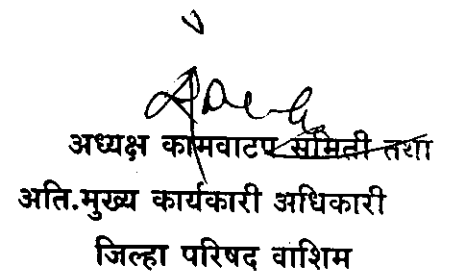 अध्यक्ष कामवाटप समिती तथा
अति.मुख्य कार्यकारी अधिकारी
जिल्हा परिषद वाशिम